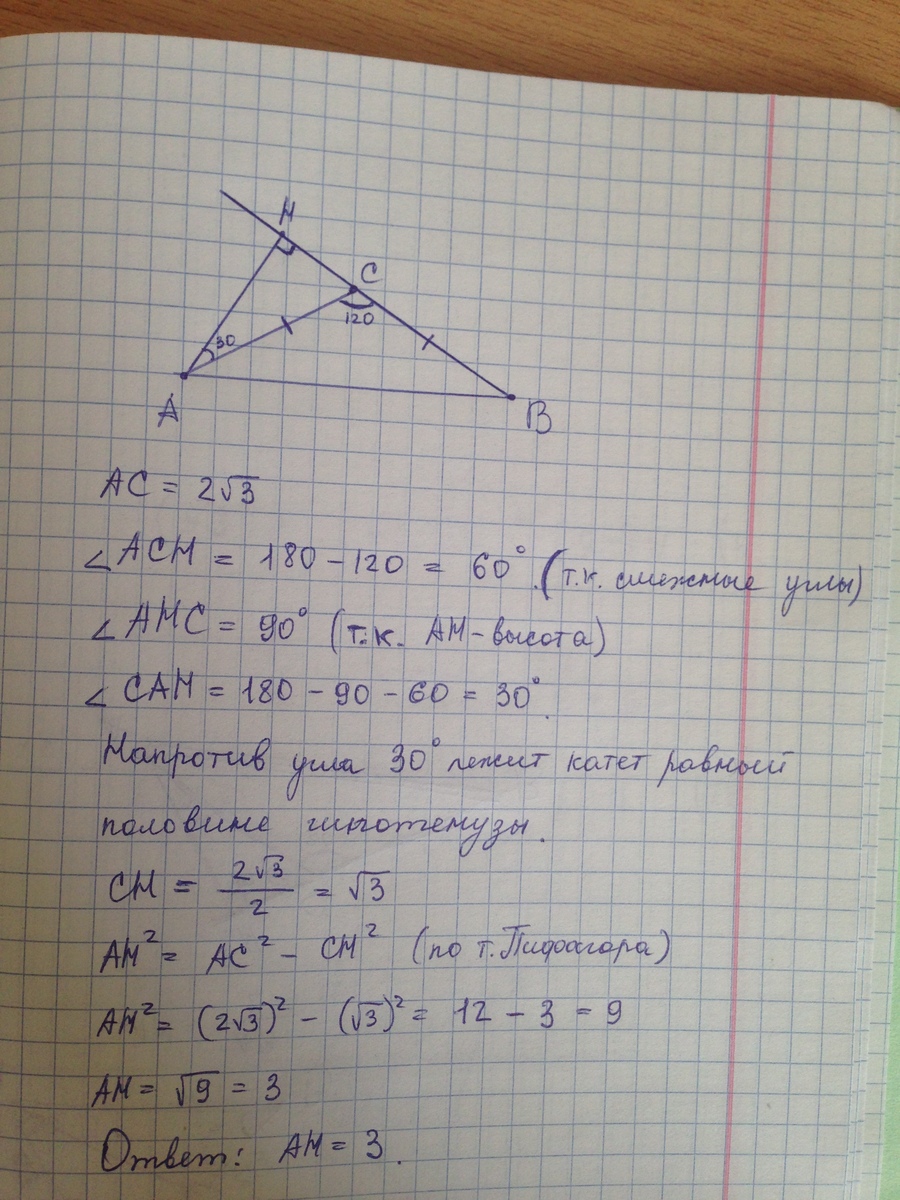 H
C
120
30
A
B
AC = 2√3
∠ACH = 180 - 120 = 60°. (т.к. смежные углы)
∠AHC = 90° (т.к. AH - высота)
∠CAH = 180 - 90 - 60 = 30°.
Напротив угла 30° лежит катет равный
половине гипотенузы.
CH = 2√3/2 = √3
AH² = AC² - CH² (по т. Пифагора)
AH² = (2√3)² - (√3)² = 12 - 3 = 9
AH = √9 = 3
Ответ: AH = 3.